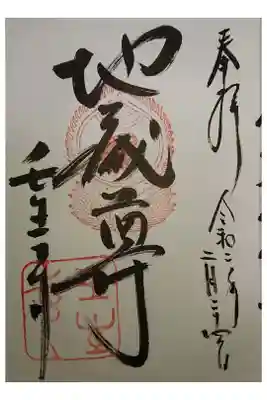 奉拝
令和二年
二月二十四日
地蔵尊
壬生寺